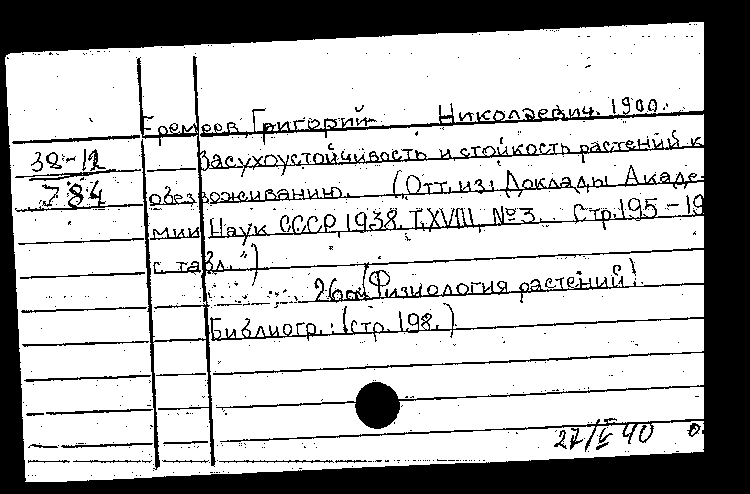 Еремеев, Григорий Николаевич. 1900.
38-12
784
Засухоустойчивость и стойкость растений к
обезвоживанию. (Отт. из: Доклады Акаде-
мии Наук СССР, 1938. Т. XVIII, № 3. Стр. 195-19
с табл.")
(Физиология растений)
Библиогр.: (стр. 198.)
27/V 40